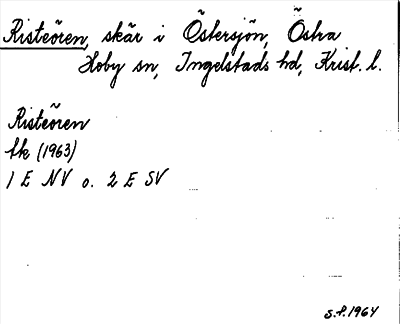 Risteören, skär i Östersjön, Östra
Hoby sn, Ingelstads hd, Krist. l.
Risteören
Ek (1963)
1 E NV o. 2 E SV
s.f. 1964